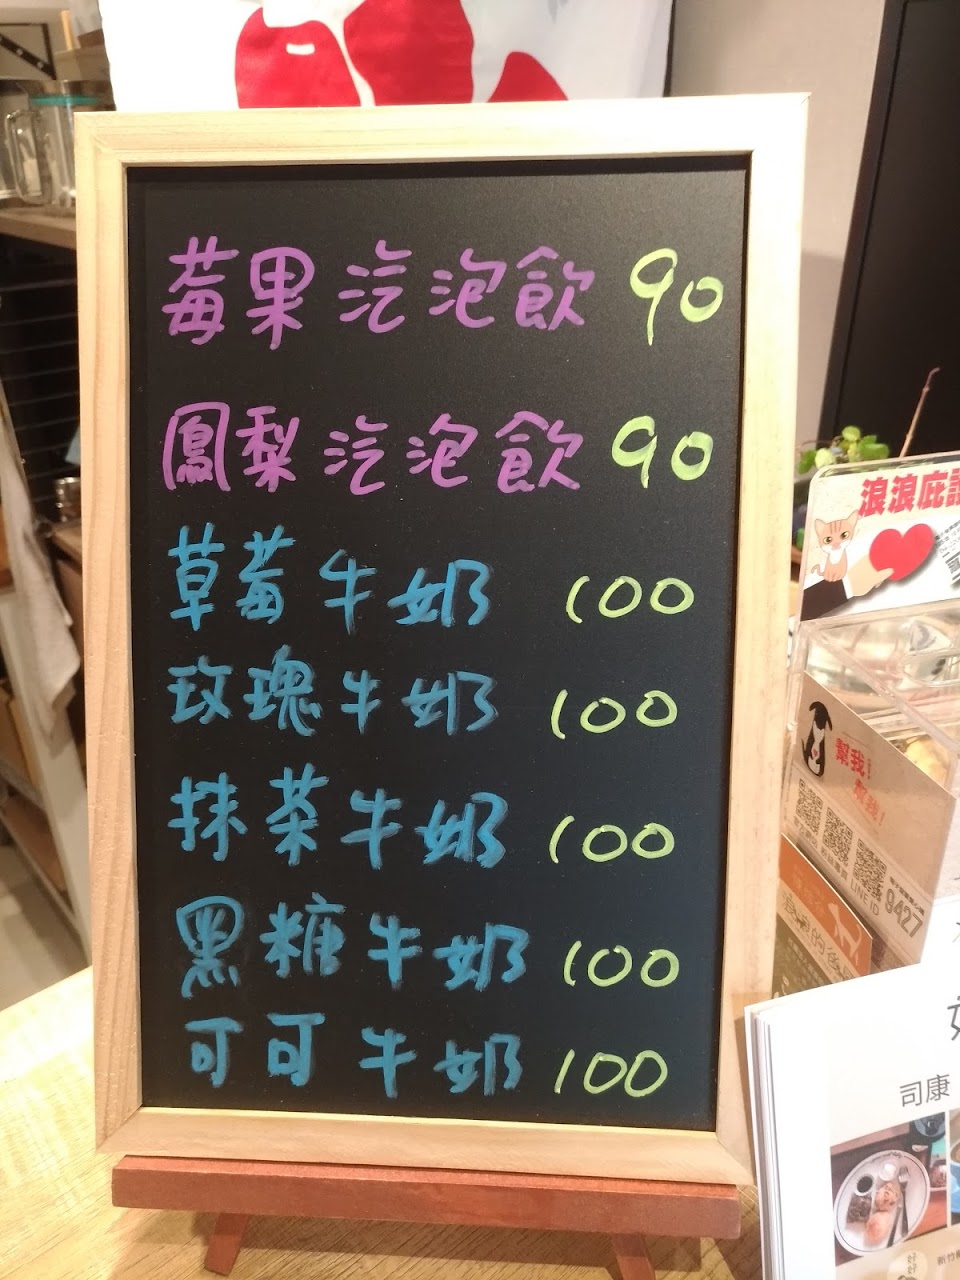 莓果汽泡飲 90
鳳梨汽泡飲 90
草莓牛奶 100
玫瑰牛奶 100
抹茶牛奶 100
黑糖牛奶 100
可可牛奶 100
浪浪庇護
幫我!
幫我!
LINE ID
9427
司康